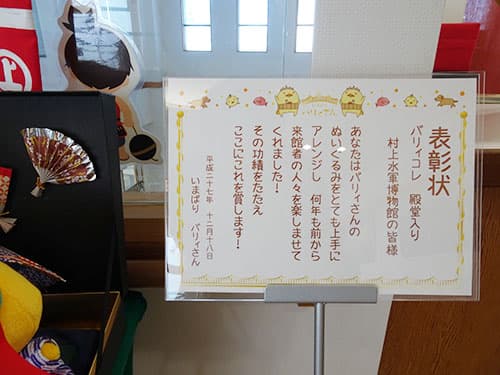 表彰状
バリィコレ 殿堂入り
村上水軍博物館の皆様
あなたはバリィさんの
ぬいぐるみをとても上手に
アレンジし 何年も前から
来館者の人々を楽しませて
くれました!
その功績をたたえ
ここにこれを賞します!
平成二十七年 十二月十八日
いまばり バリィさん
バリィさん
上